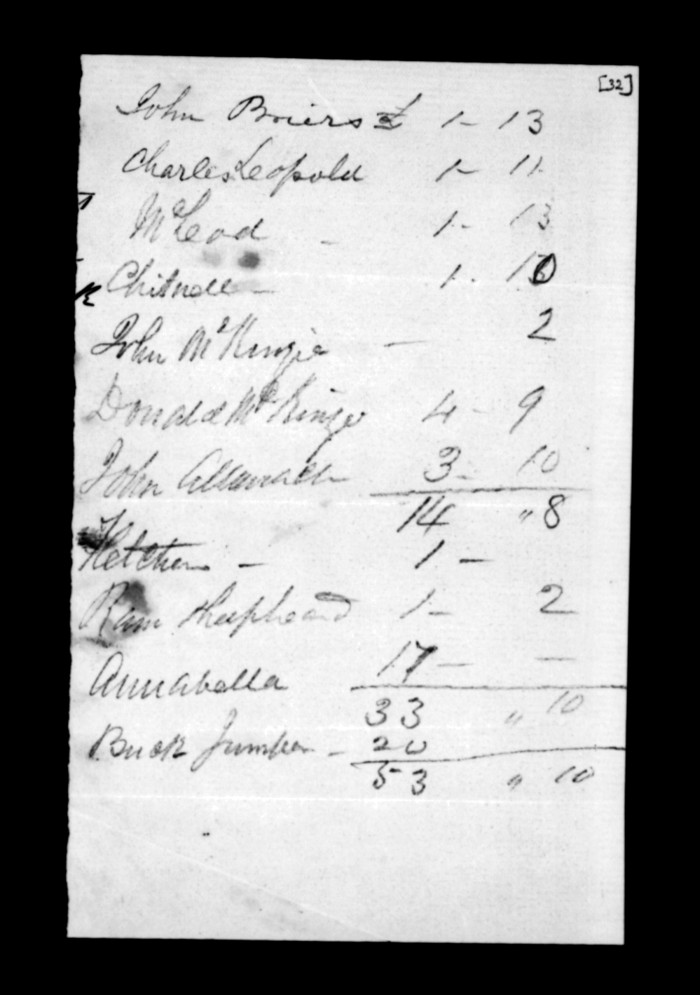 [32]
John Briers £ 1 - 13
Charles Leopold 1 - 11
McLeod - 1 - 13
Chisnell - 1 - 10
John McKinzie - 2
Donald McKinze 4 - 9
John Allanach 3 - 10
14 " 8
Fletcher - 1 -
Ram Shepheard 1 - 2
Annabella 17 - -
33 " 10
Buck Jumper - 20
53 " 10